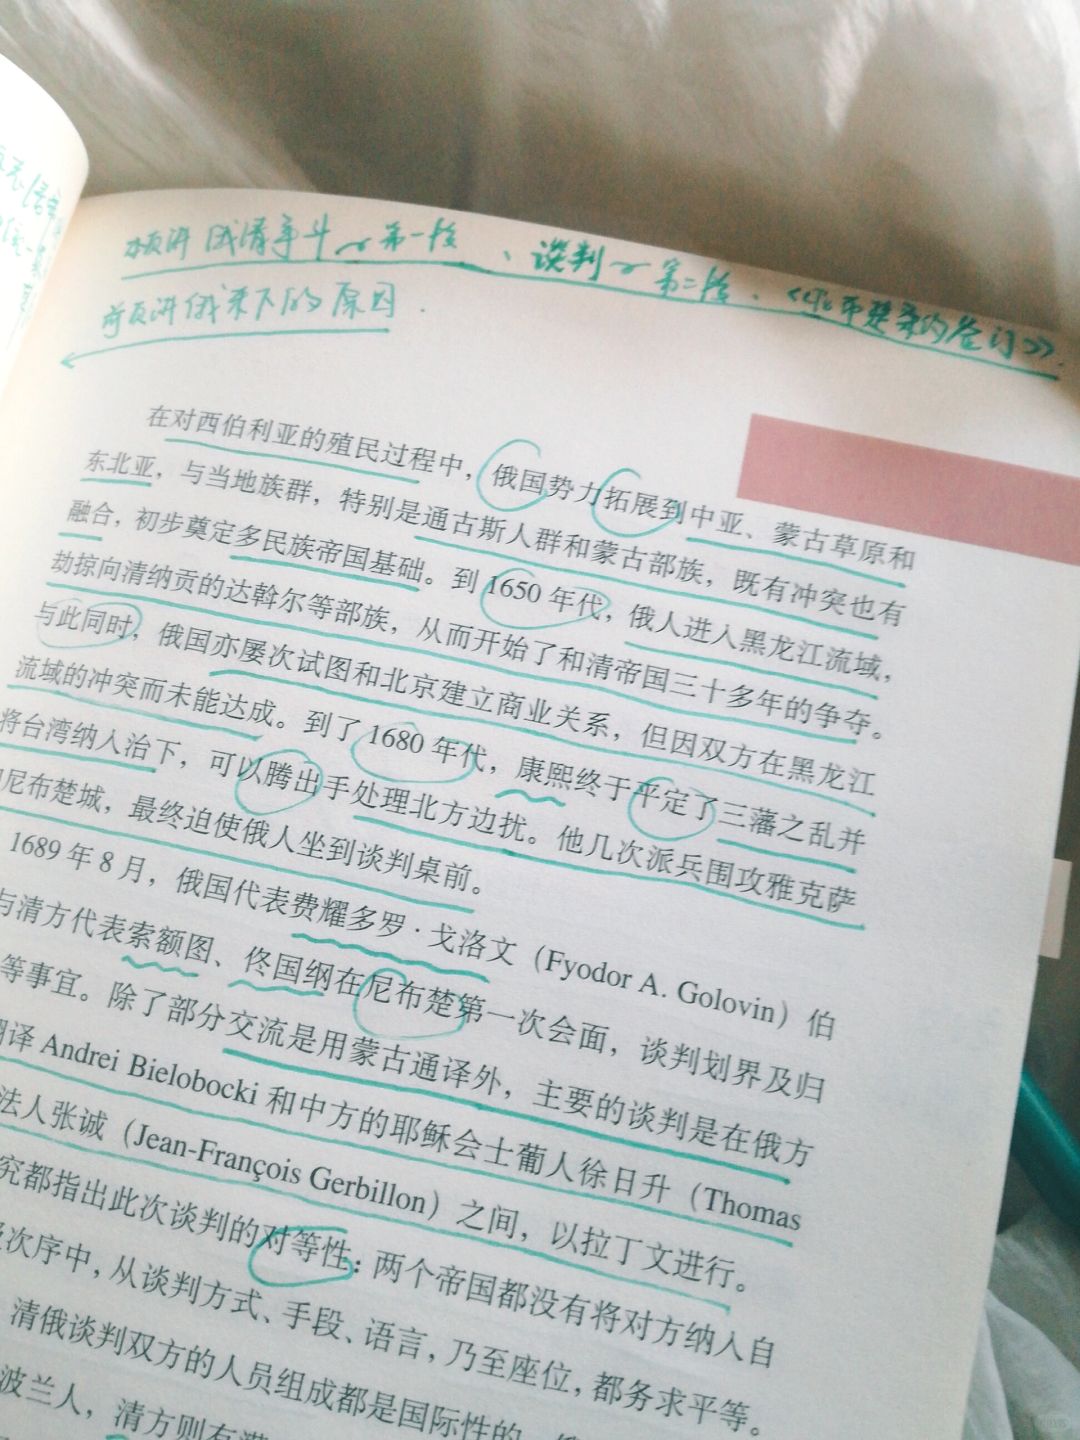 本页讲 俄清争斗~第一段、谈判~第二段、《尼布楚条约签订》.
前页讲俄来下的原因.
在对西伯利亚的殖民过程中，俄国势力拓展到中亚、蒙古草原和
东北亚，与当地族群，特别是通古斯人群和蒙古部族，既有冲突也有
融合，初步奠定多民族帝国基础。到1650年代，俄人进入黑龙江流域，
劫掠向清纳贡的达斡尔等部族，从而开始了和清帝国三十多年的争夺。
与此同时，俄国亦屡次试图和北京建立商业关系，但因双方在黑龙江
流域的冲突而未能达成。到了1680年代，康熙终于平定了三藩之乱并
将台湾纳入治下，可以腾出手处理北方边扰。他几次派兵围攻雅克萨
尼布楚城，最终迫使俄人坐到谈判桌前。
1689年8月，俄国代表费耀多罗·戈洛文（Fyodor A. Golovin）伯
与清方代表索额图、佟国纲在尼布楚第一次会面，谈判划界及归
等事宜。除了部分交流是用蒙古通译外，主要的谈判是在俄方
译 Andrei Bielobocki 和中方的耶稣会士葡人徐日升（Thomas
法人张诚（Jean-François Gerbillon）之间，以拉丁文进行。
究都指出此次谈判的对等性：两个帝国都没有将对方纳入自
次序中，从谈判方式、手段、语言，乃至座位，都务求平等。
清俄谈判双方的人员组成都是国际性的
波兰人，清方则有